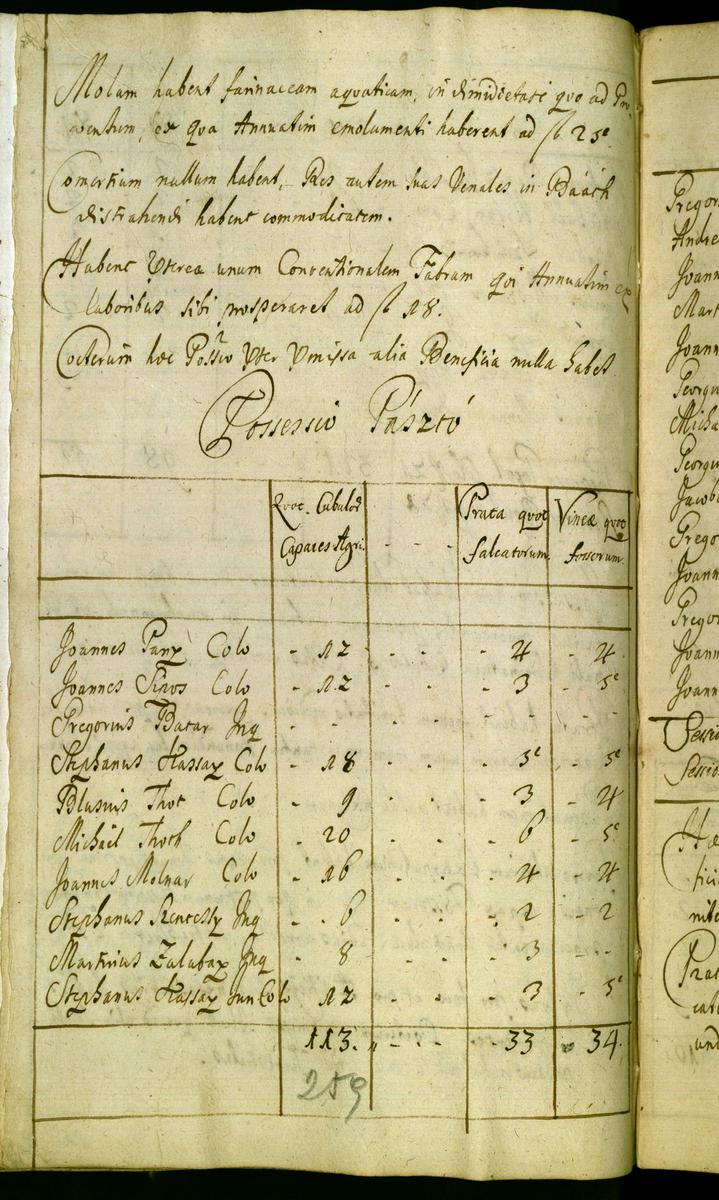 Molam habent farinaceam aquaticam, in dimidietate quo ad Pro-
ventum, ex qua Annuatim emolumenti haberent ad fl. 25.
Comertium nullum habent, Res autem suas Venales in Baách
distrahendi habent commoditatem.
Habent Uterea unum Conventionalem Fabrum qui Annuatim ex
laboribus sibi prosperaret ad fl 18.
Coeterum hoc Possio Uter Vmissa alia Beneficia nulla habet
Possessio Pásztó
Quot. Cubulor Prata quot Vineæ quot
Capaces Agri. - - - falcatorum. fossorum.
Joannes Colo - 12 - - - 4 - 4
Joannes Colo - 12 - - - 3 - 5
Gregorius Inq - - - - - - -
Stephanus Hassay Colo - 18 - - - 5 - 5
Blasius Thot Colo - 9 - - - 3 - 4
Michäil Thoth Colo - 20 - - - 6 - 5
Joannes Molnar Colo - 16 - - - 4 - 4
Stephanus Inq - - 6 - - - 2 - 2
Martinus Zalabay Inq - 8 - - - 3 - - -
Stephanus Hassay Jun Colo 12 - - - 3 - 5
113. - - - - 33 34.
259
Gregor
Andre
Joann
Mart
Joann
Georgi
Micha
Georgi
Jacob
Grego
Joann
Grego
Joann
Joann
Sessio
Sessio